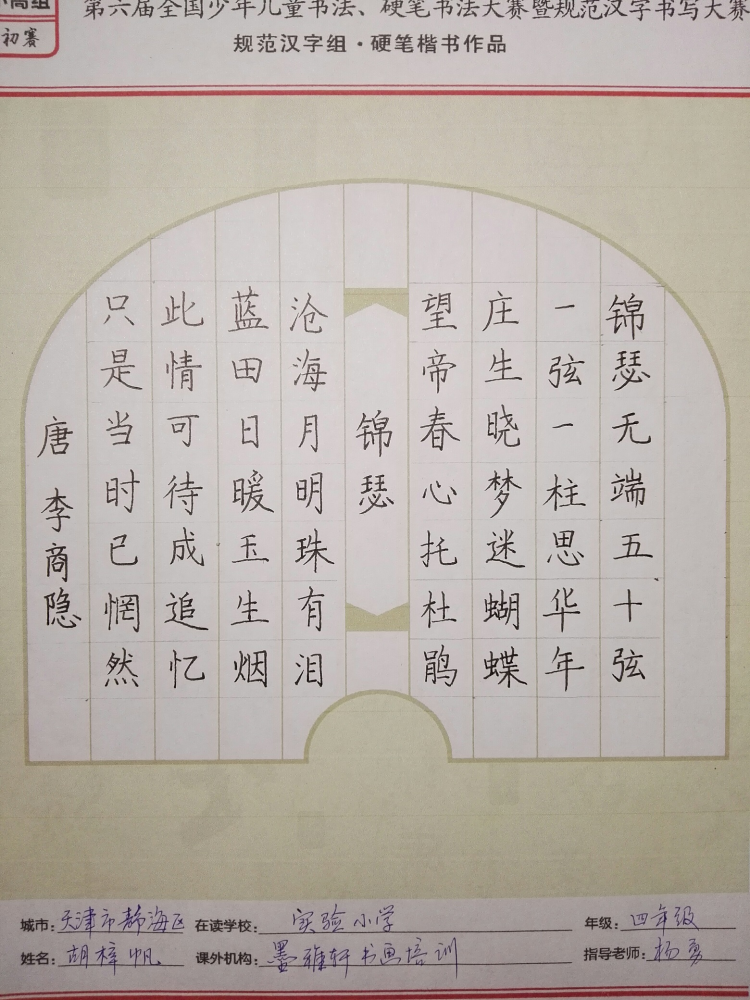 高组
初赛
第六届全国少年儿童书法、硬笔书法大赛暨规范汉字书写大赛
规范汉字组·硬笔楷书作品
锦瑟无端五十弦
一弦一柱思华年
庄生晓梦迷蝴蝶
望帝春心托杜鹃
锦瑟
沧海月明珠有泪
蓝田日暖玉生烟
此情可待成追忆
只是当时已惘然
唐 李商隐
城市：天津市静海区 在读学校：实验小学 年级：四年级
姓名：胡梓帆 课外机构：墨雅轩书画培训 指导老师：杨勇